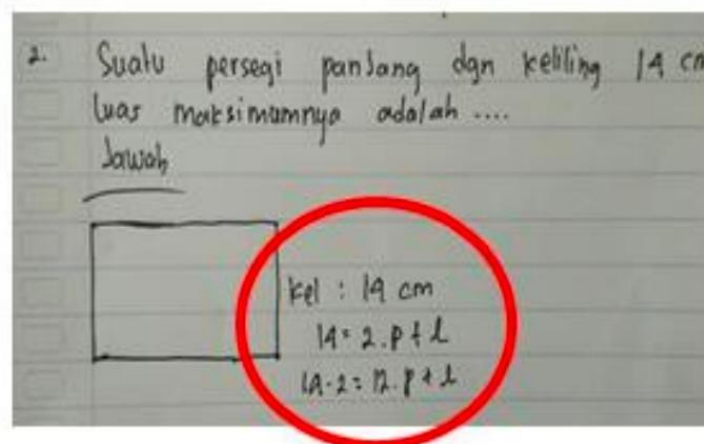 2. Suatu persegi panjang dgn keliling 14 cm
luas maksimumnya adalah ....
Jawab
kel : 14 cm
14 = 2.p + l
14-2 = 12.p + l